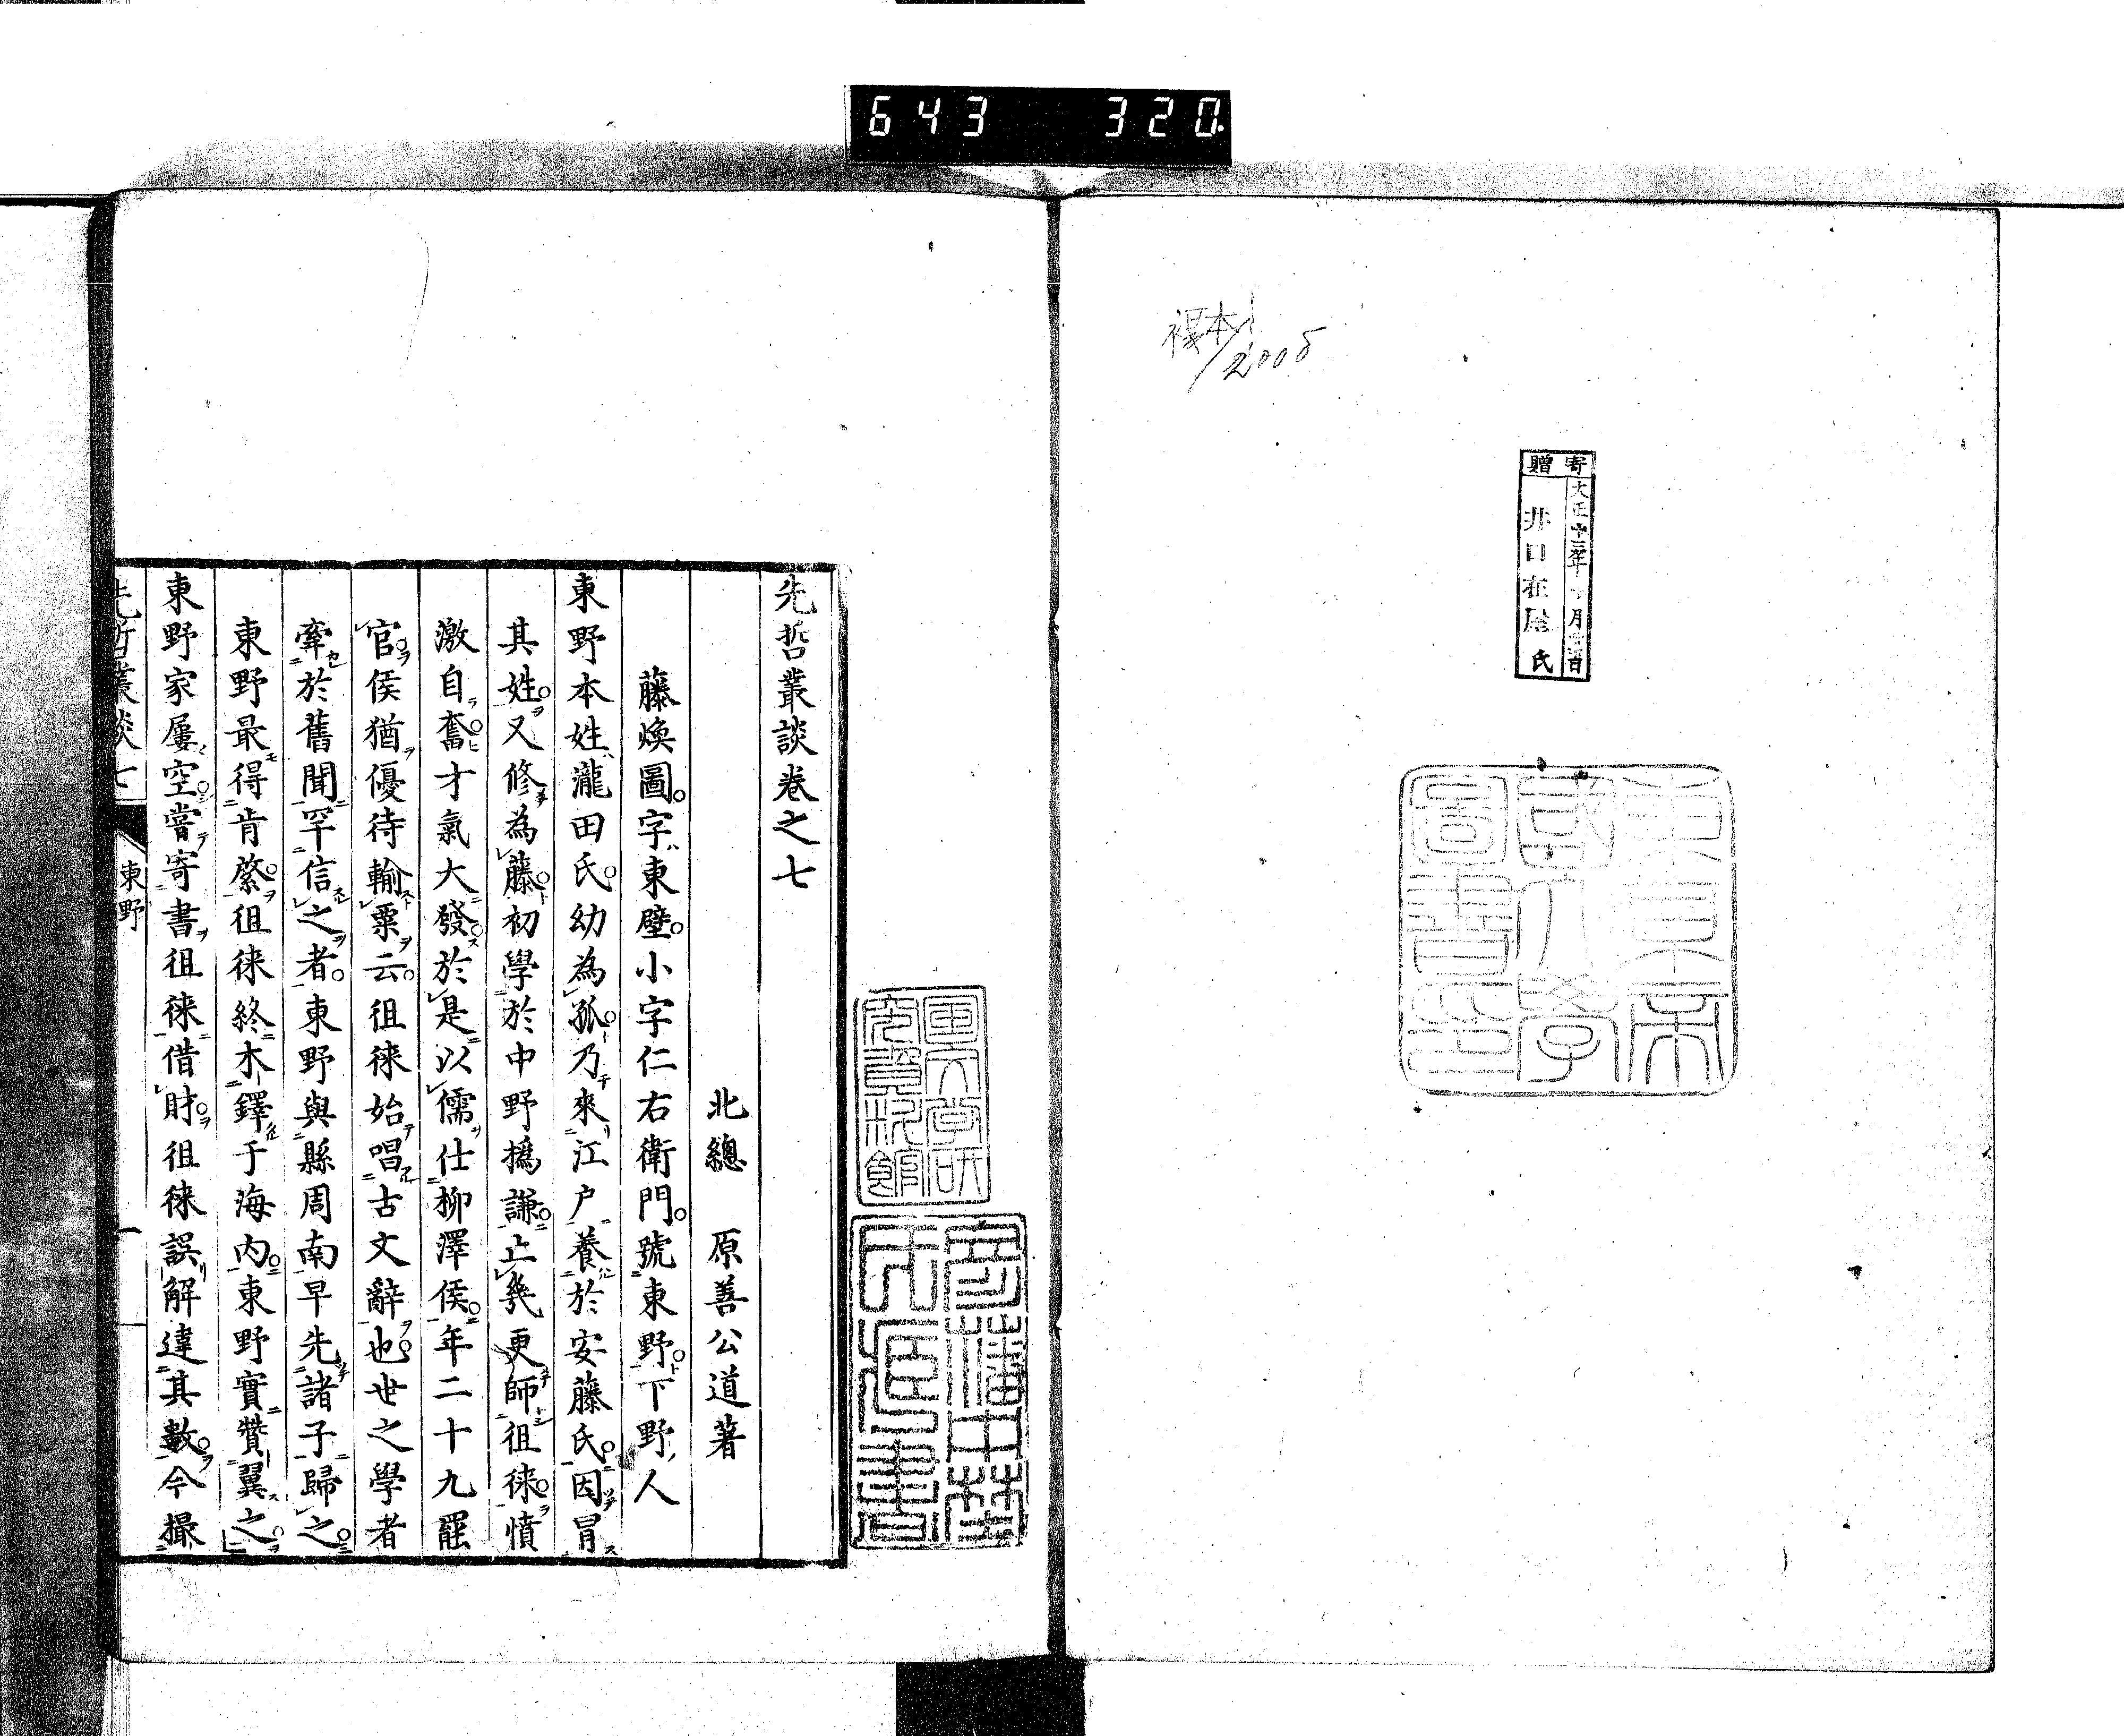 643 320.
複本
2008
寄贈
大正十三年十月
井口在屋氏
東京帝
國大學
圖書印
國文學研
究資料館
先哲叢談卷之七
北總 原善公道著
藤煥圖。字ハ東壁。小字仁右衛門。號東野。下野ノ人
東野本姓ハ瀧田氏。幼為孤。乃來江戸養於安藤氏。因冒
其姓。又修為藤。初學於中野撝謙。亡幾更師徂徠。憤
激自奮。才氣大發。於是以儒仕柳澤侯。年二十九罷
官。侯猶優待輸粟云。徂徠始唱古文辭也。世之學者
牽於舊聞罕信之者。東野與縣周南早先諸子歸之。
東野最得肯綮。徂徠終木鐸于海內。東野實贊翼之。
東野家屢空。嘗寄書徂徠借財。徂徠誤解違其數。今撮
先哲叢談七
東野
一